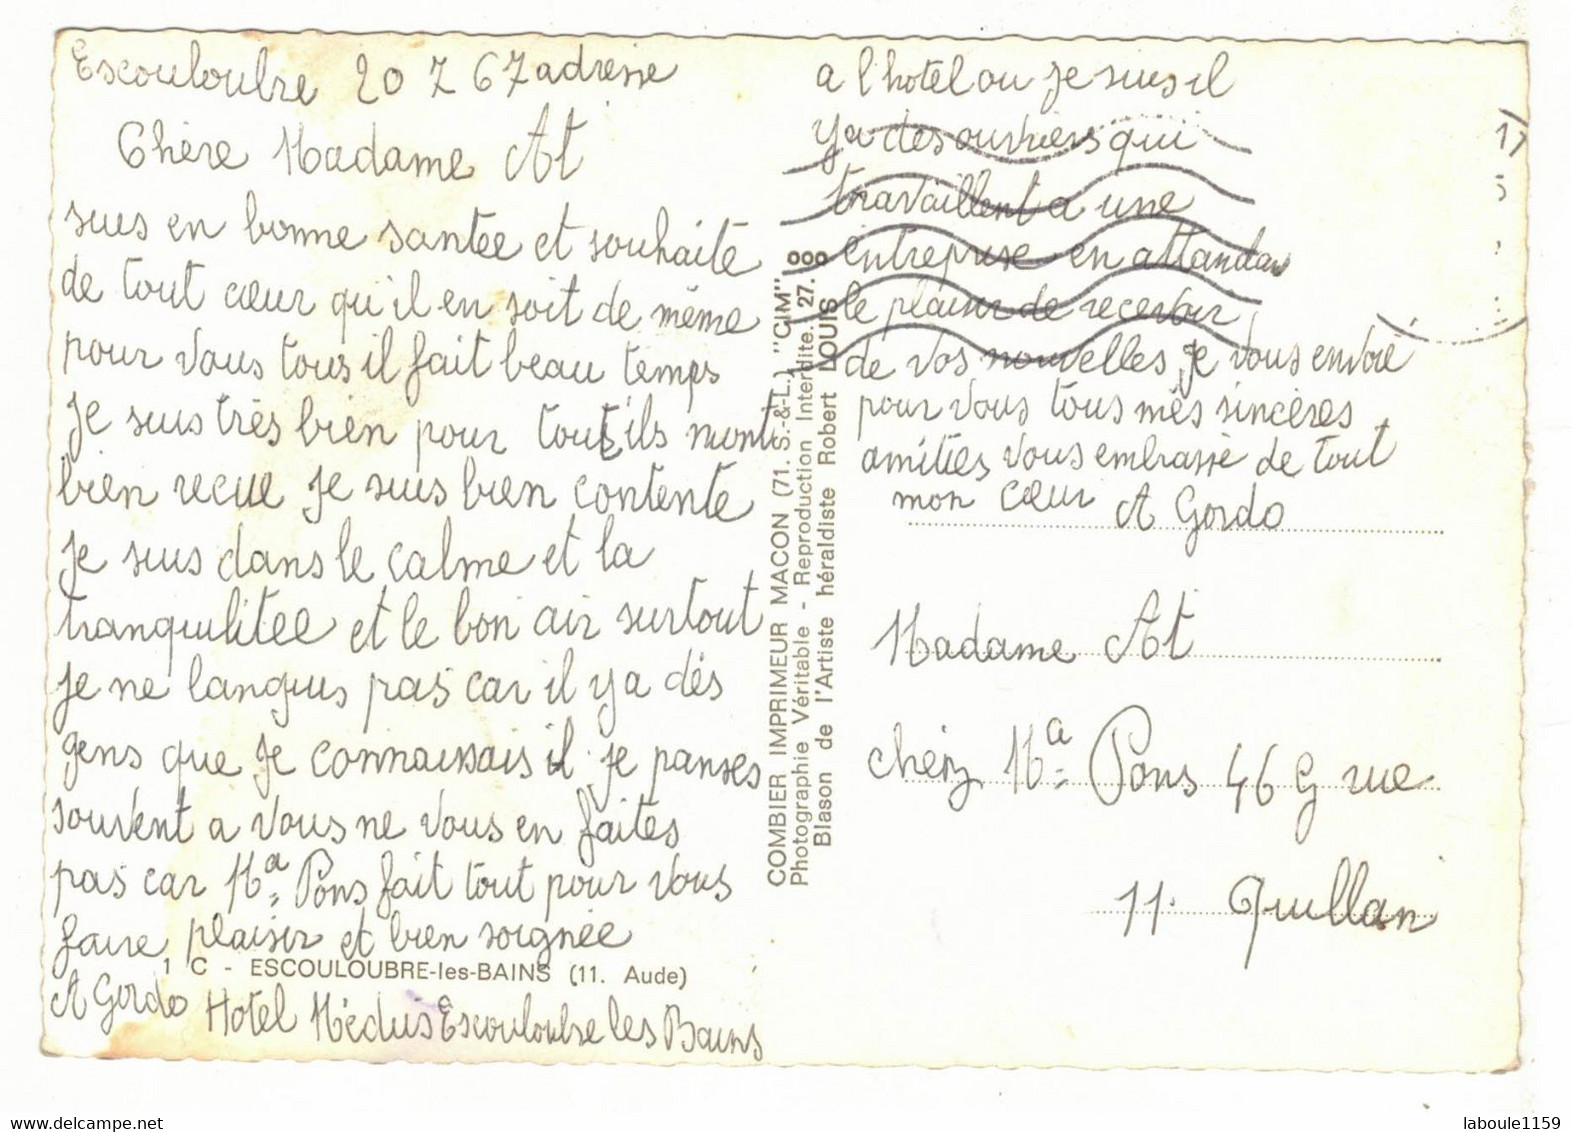 Escouloubre 20 7 67 adresse
Chère Madame At
suis en bonne santée et souhaite
de tout cœur qu'il en soit de même
pour vous tous il fait beau temps
Je suis très bien pour tout ils mont
bien recue Je suis bien contente
Je suis dans le calme et la
tranquilitée et le bon air surtout
Je ne languis pas car il y a dés
gens que Je connaissais il Je panses
souvent a vous ne vous en faites
pas car Ma Pons fait tout pour vous
faire plaisir et bien soignée
1 C - ESCOULOUBRE-les-BAINS (11. Aude)
A Gordo Hotel Médus Escouloubre les Bains
COMBIER IMPRIMEUR MACON (71. S.-&-L.) "CIM"
Photographie Véritable - Reproduction Interdite. 27. 000
Blason de l'Artiste héraldiste Robert LOUIS
a l'hotel ou Je suis il
ya des ouvriers qui
travaillent a une
entreprise en attandan
le plaisir de recevoir
de vos nouvelles Je vous envoie
pour vous tous més sincères
amitiés vous embrasse de tout
mon cœur A Gordo
Madame At
chéz Ma Pons 46 G rue
11. Quillan
delcampe.net
laboule1159